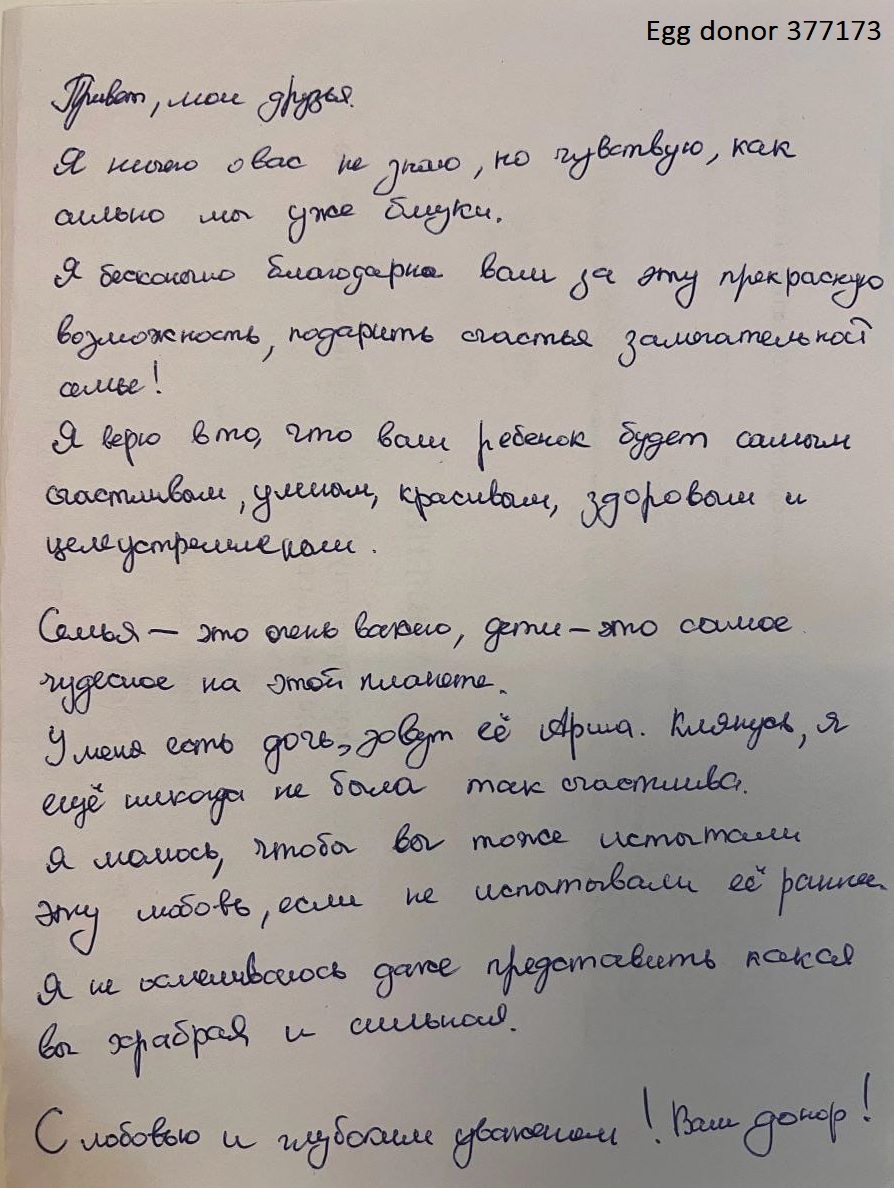 Egg donor 377173
Привет, мои друзья.
Я ничего о вас не знаю, но чувствую, как
сильно мы уже близки.
Я бесконечно благодарна вам за эту прекрасную
возможность, подарить счастья замечательной
семье!
Я верю в то, что ваш ребенок будет самым
счастливым, умным, красивым, здоровым и
целеустремленным.
Семья — это очень важно, дети — это самое
чудесное на этой планете.
У меня есть дочь, зовут её Арина. Клянусь, я
ещё никогда не была так счастлива.
Я молюсь, чтобы вы тоже испытали
эту любовь, если не испытывали её раннее.
Я не осмеливаюсь даже представить какая
вы храбрая и сильная.
С любовью и глубоким уважением! Ваш донор!